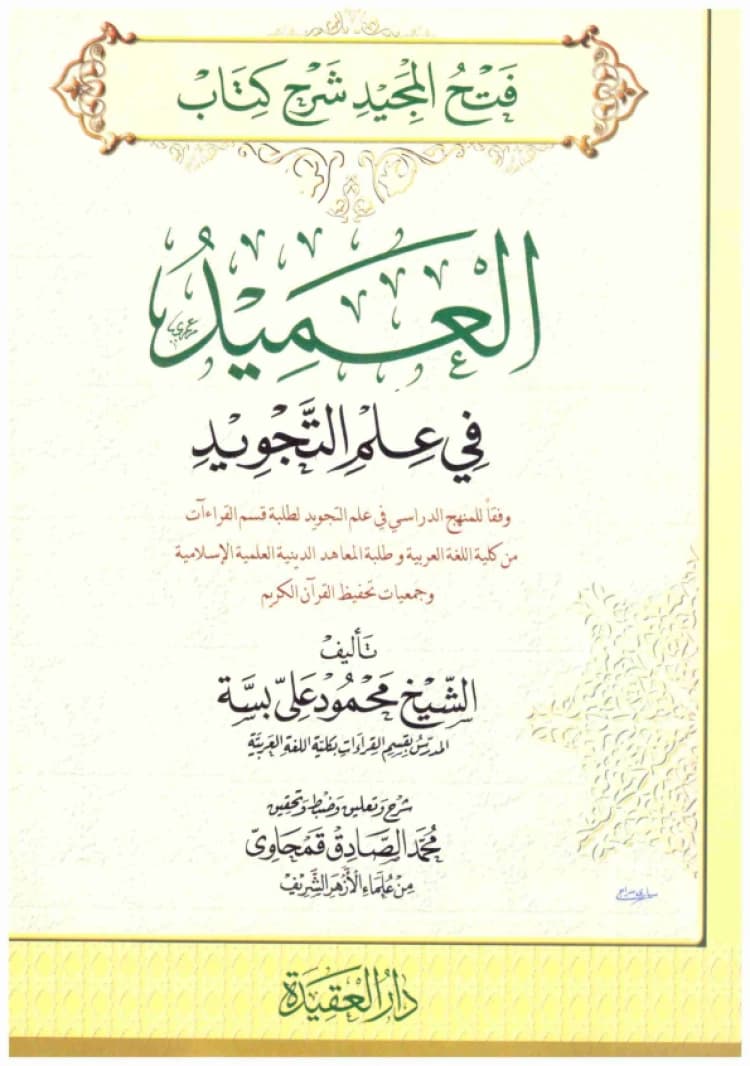 فَتْحُ المَجِيْدِ شَرْحُ كِتَابْ
الْعَمِيْدُ
فِي عِلْمِ التَّجْوِيْدِ
وفقاً للمنهج الدراسي في علم التجويد لطلبة قسم القراءآت
من كلية اللغة العربية وطلبة المعاهد الدينية العلمية الإسلامية
وجمعيات تحفيظ القرآن الكريم
تَأليفْ
الشَّيْخْ مَحْمُودْ عَلِىّ بسَّة
المدرّسُ بقسِم القِراءَاتِ بكليَّة اللغَة العَربيَّة
شَرْح وَتعليق وَضبْط وَتحقيق
مُحَمَّد الصَّادِقْ قَمْحَاوىّ
مِنْ عُلَمَاءِ الأَزْهَرِ الشَّرِيْفِ
دَارُ العَقِيْدَة